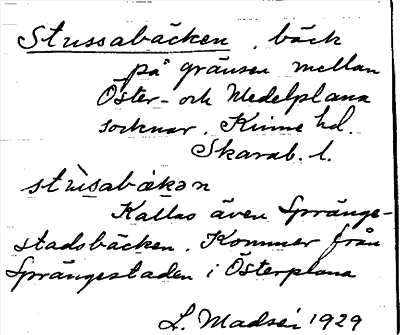 Stussabäcken, bäck
på gränsen mellan
Öster- och Medelplana
socknar. Kinne hd.
Skarab. l.
stùsabækən
Kallas även Spränge-
stadsbäcken. Kommer från
Sprängestaden i Österplana
L. Madsén 1929